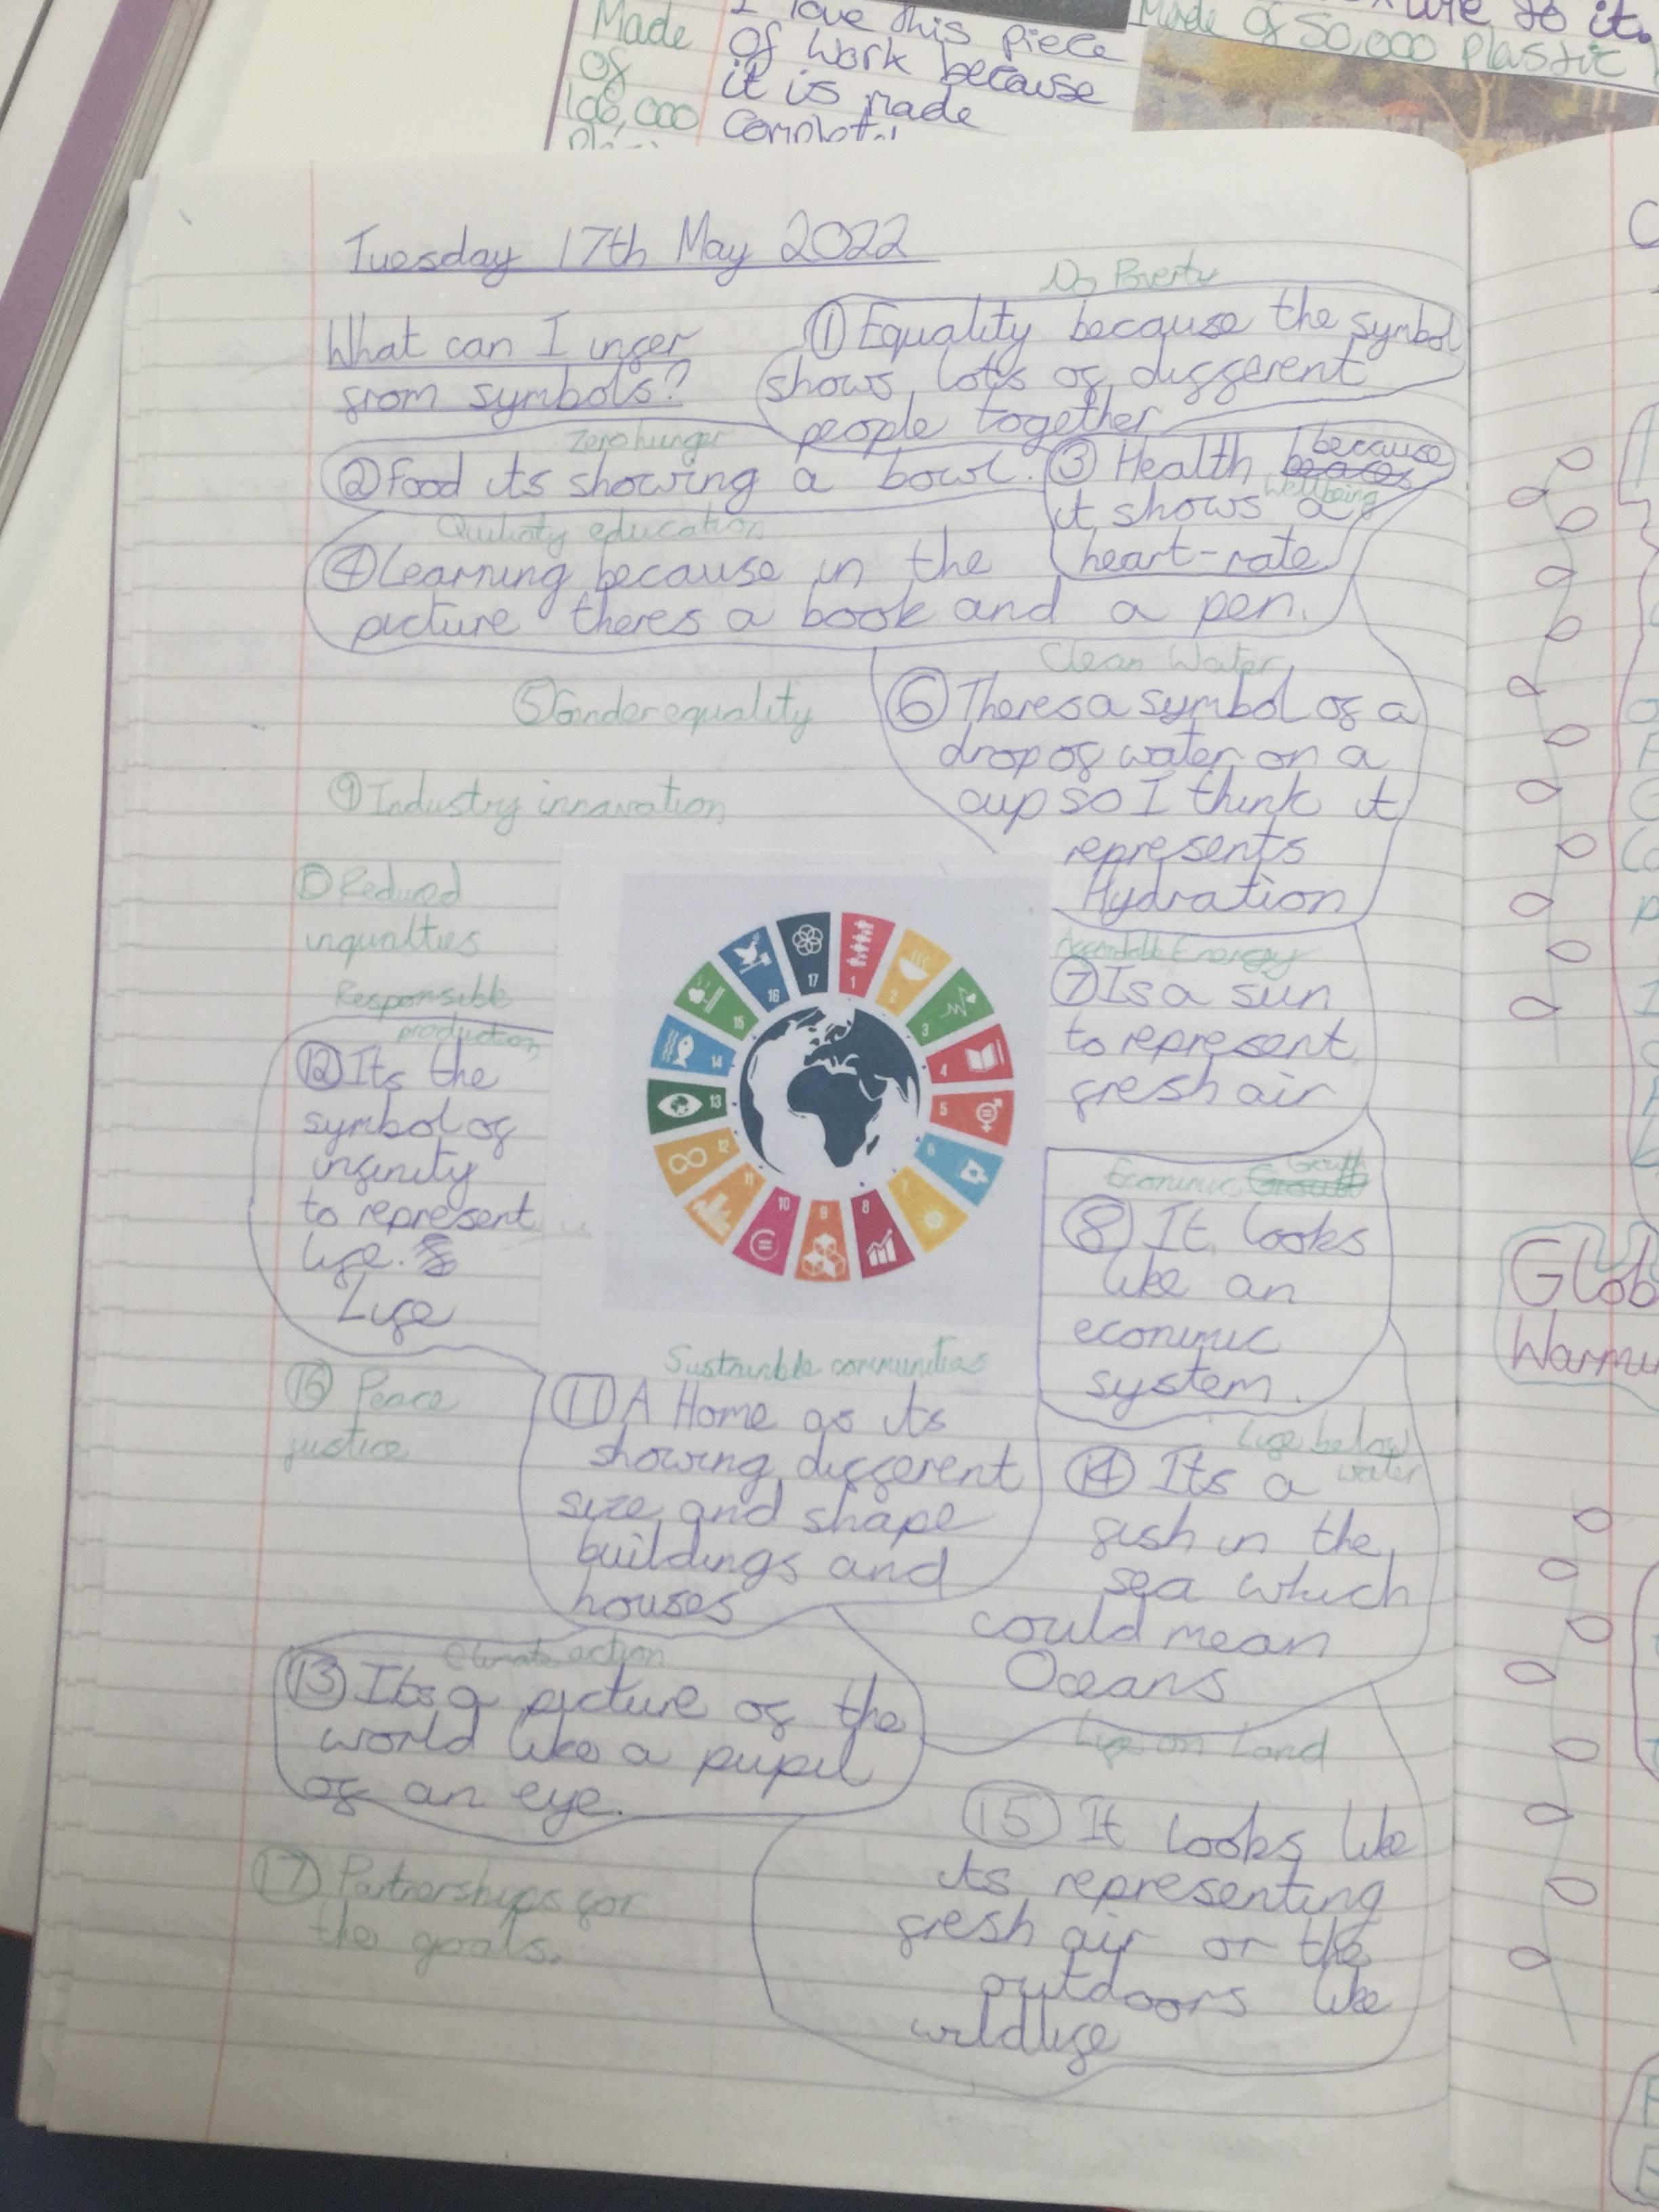 Made
of
106,000
I love this piece
of work because
it is made
to it.
Made of 50,000 plastic
Tuesday 17th May 2022
What can I infer
from symbols?
No Poverty
① Equality because the symbol
shows lots of different
people together
Zero hunger
② Food its showing a bowl.
③ Health because
Wellbeing
it shows a
heart-rate
Qulinty education
④ Learning because in the
picture theres a book and a pen.
⑤ Gender equality
Clean Water
⑥ Theres a symbol of a
drop of water on a
cup so I think it
represents
Hydration
⑨ Industry innavation
⑩ Reduced
inqualties
Energy
⑦ Is a sun
to represent
fresh air
Responsible
production
⑫ Its the
symbol of
infinity
to represent
life.
Life
17
1
2
3
4
5
6
7
8
9
10
11
12
13
14
15
16
Econimic Growth
⑧ It looks
like an
econimic
system.
Sustainble communities
⑪ A Home as its
showing different
size and shape
buildings and
houses
⑯ Peace
justice
Life below
water
⑭ Its a
fish in the
sea which
could mean
Oceans
Climate action
⑬ Its a picture of the
world like a pupil
of an eye.
Life on Land
⑮ It looks like
its representing
fresh air or the
outdoors like
wildlife
⑰ Partnerships for
the goals.
Glob
Warmi